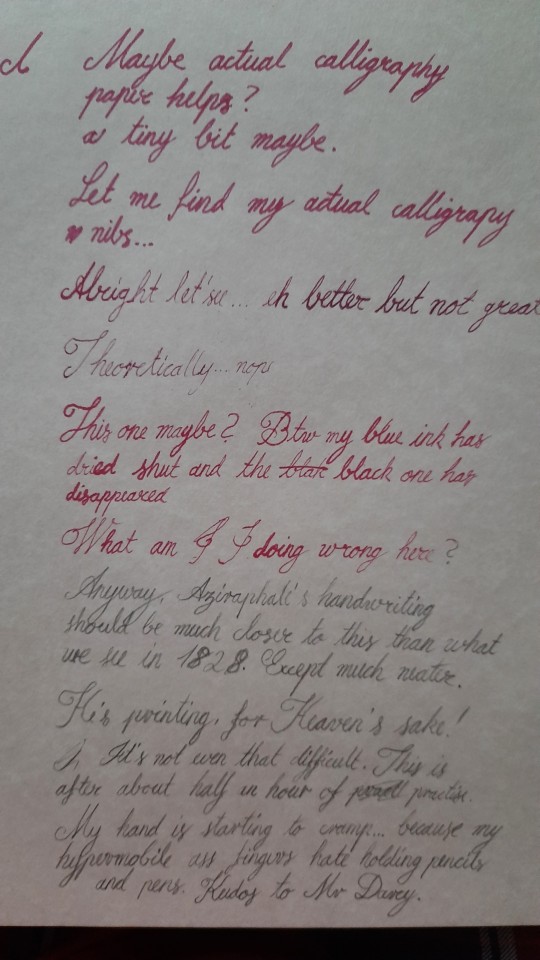 Maybe actual calligraphy
paper helps?
a tiny bit maybe.
Let me find my actual calligrapy
nibs...
Alright let'see... eh better but not great
Theoretically... nope
This one maybe? Btw my blue ink has
dried shut and the black one has
disappeared
What am I doing wrong here?
Anyway, Aziraphale's handwriting
should be much closer to this than what
we see in 1828. Except much neater.
He's printing, for Heaven's sake!
It's not even that difficult. This is
after about half an hour of practise.
My hand is starting to cramp... because my
hypermobile ass fingers hate holding pencils
and pens. Kudos to Mr Davey.